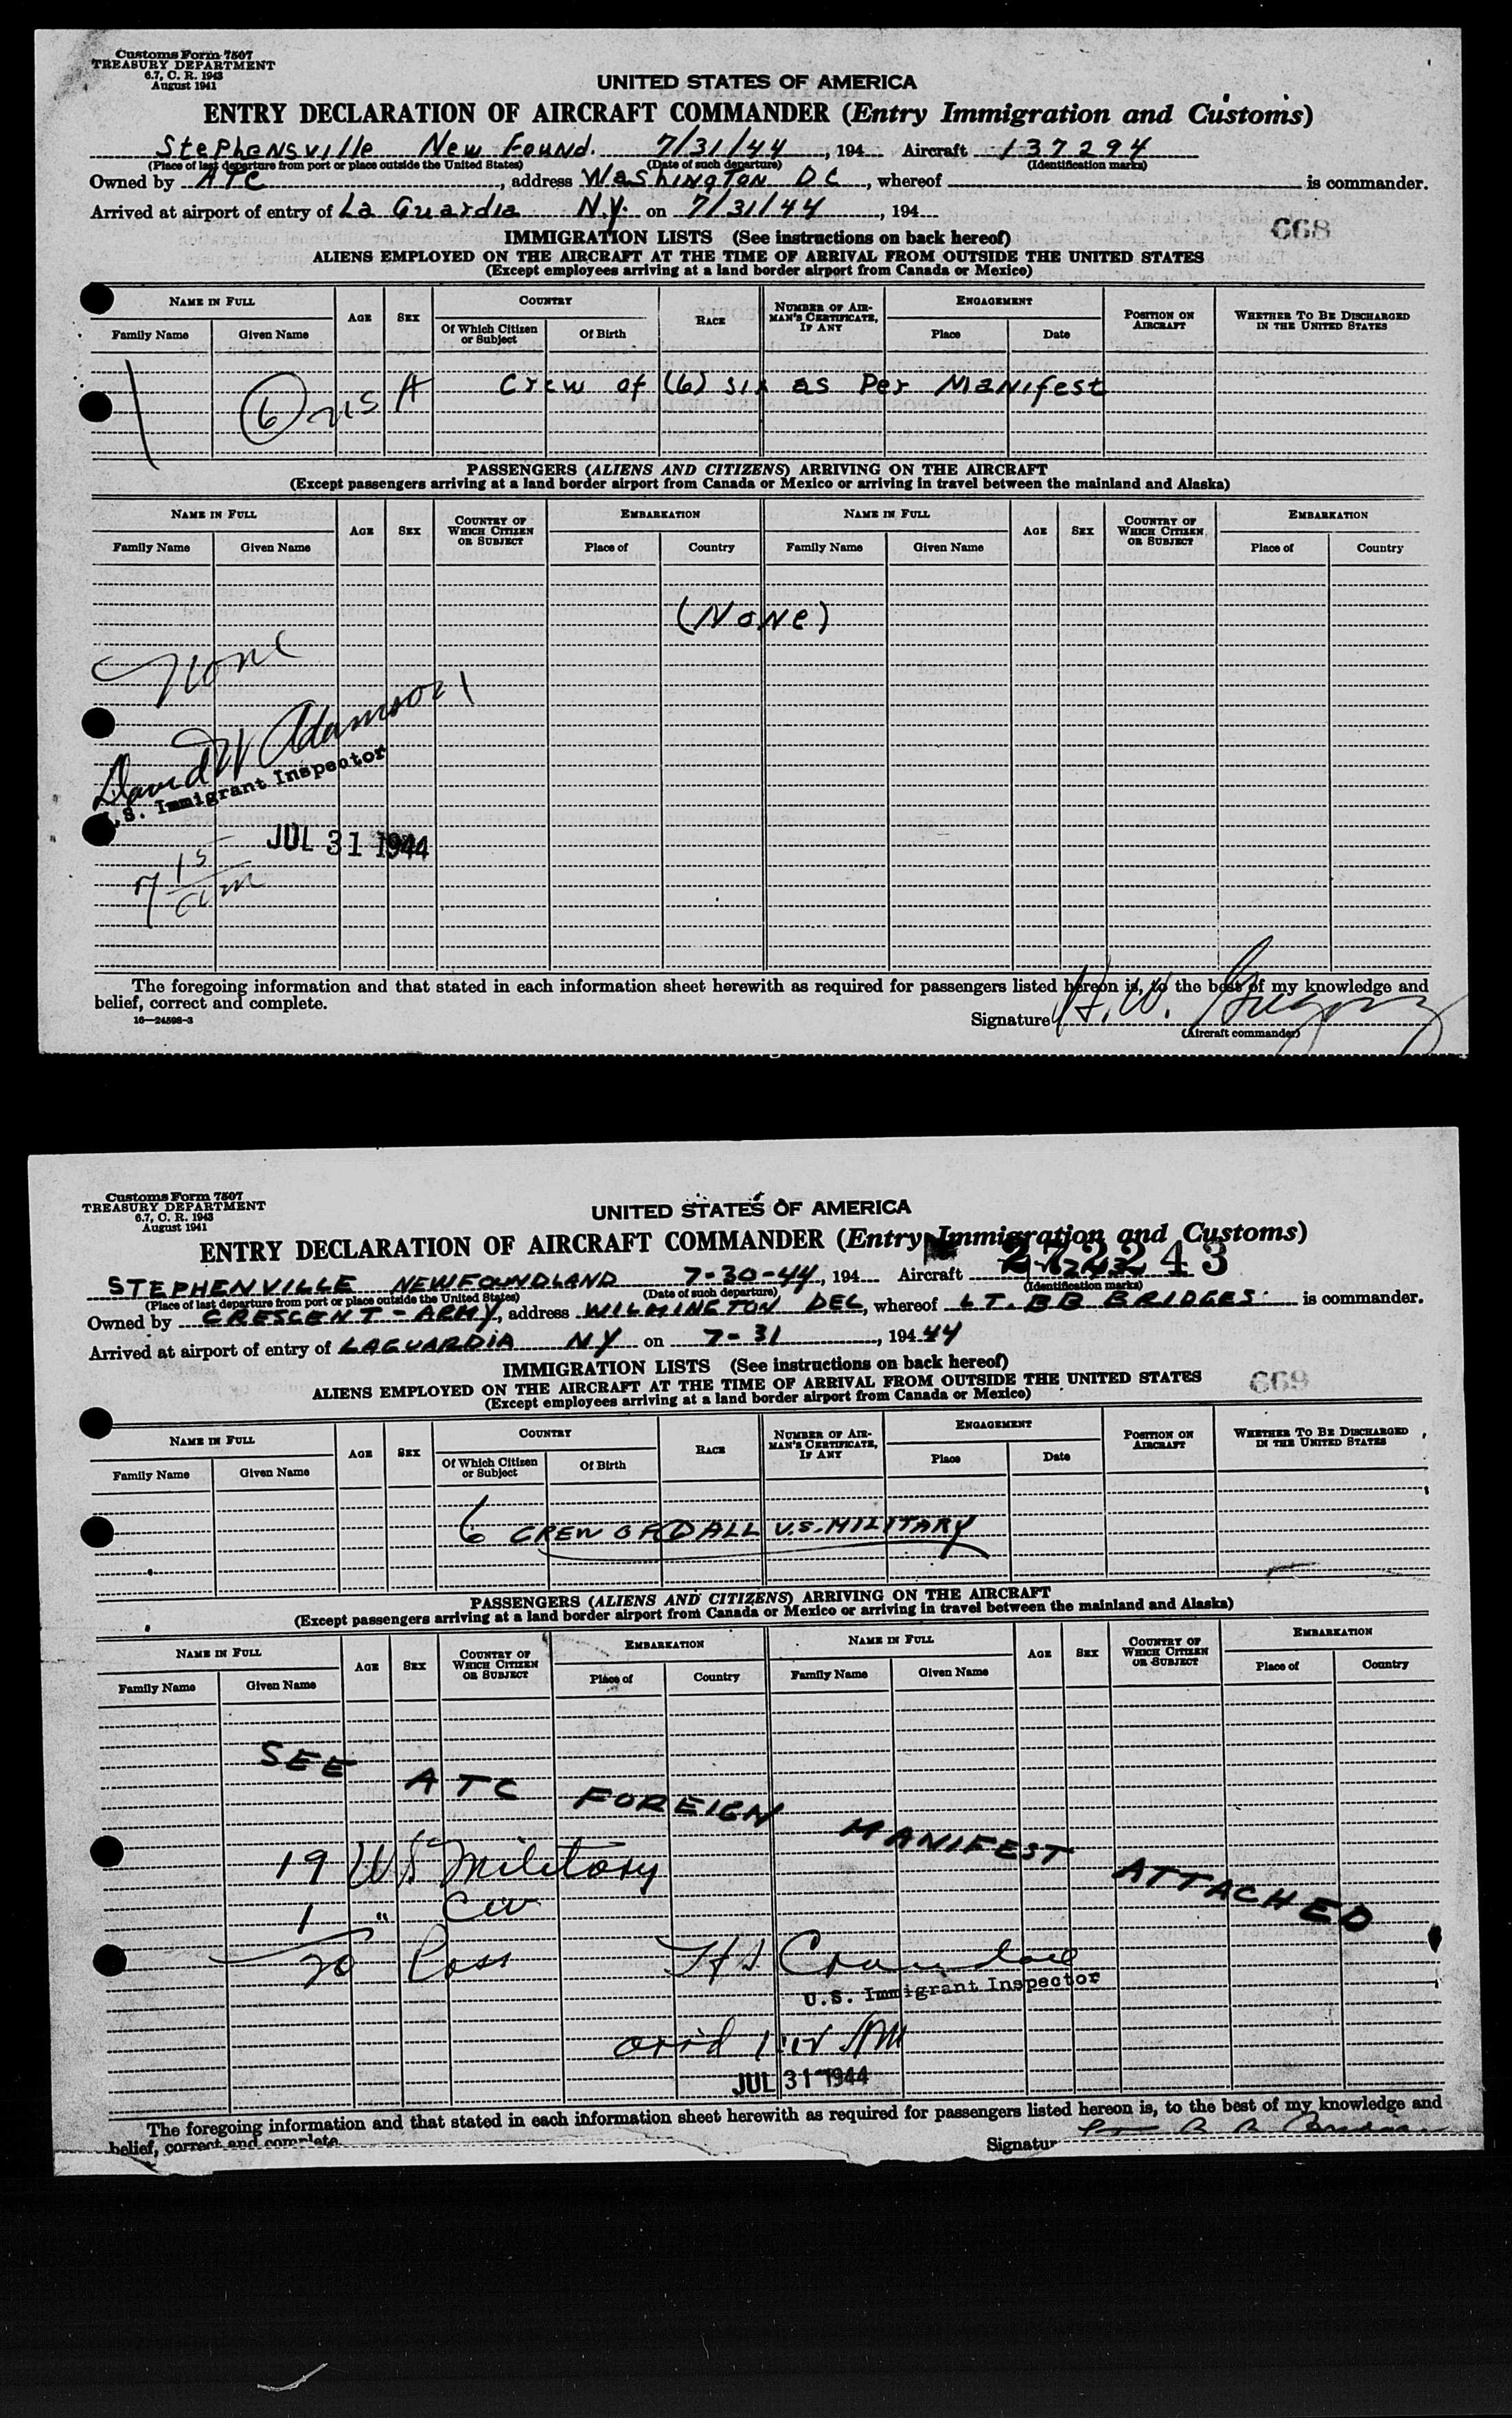 Customs Form 7507
TREASURY DEPARTMENT
6.7, C. R. 1943
August 1941
UNITED STATES OF AMERICA
ENTRY DECLARATION OF AIRCRAFT COMMANDER (Entry Immigration and Customs)
Stephensville New Found. 7/31/44, 194 Aircraft 137294
(Place of last departure from port or place outside the United States) (Date of such departure) (Identification marks)
Owned by ATC, address Washington DC, whereof is commander.
Arrived at airport of entry of La Guardia N.Y. on 7/31/44, 194
668
IMMIGRATION LISTS (See instructions on back hereof)
ALIENS EMPLOYED ON THE AIRCRAFT AT THE TIME OF ARRIVAL FROM OUTSIDE THE UNITED STATES
(Except employees arriving at a land border airport from Canada or Mexico)
NAME IN FULL AGE SEX COUNTRY RACE NUMBER OF AIRMAN'S CERTIFICATE, IF ANY ENGAGEMENT POSITION ON AIRCRAFT WHETHER TO BE DISCHARGED IN THE UNITED STATES
Family Name Given Name Of Which Citizen or Subject Of Birth Place Date
6 Crew of (6) six as Per Manifest
PASSENGERS (ALIENS AND CITIZENS) ARRIVING ON THE AIRCRAFT
(Except passengers arriving at a land border airport from Canada or Mexico or arriving in travel between the mainland and Alaska)
NAME IN FULL AGE SEX COUNTRY OF WHICH CITIZEN OR SUBJECT EMBARKATION NAME IN FULL AGE SEX COUNTRY OF WHICH CITIZEN OR SUBJECT EMBARKATION
Family Name Given Name Place of Country Family Name Given Name Place of Country
(None)
None
David W Adamson
U.S. Immigrant Inspector
JUL 31 1944
7 15 am
The foregoing information and that stated in each information sheet herewith as required for passengers listed hereon is, to the best of my knowledge and
belief, correct and complete.
16—24598-3
Signature H. W. Gregory
(Aircraft commander)
Customs Form 7507
TREASURY DEPARTMENT
6.7, C. R. 1943
August 1941
UNITED STATES OF AMERICA
ENTRY DECLARATION OF AIRCRAFT COMMANDER (Entry Immigration and Customs)
STEPHENVILLE NEWFOUNDLAND 7-30-44, 194 Aircraft 272243
(Place of last departure from port or place outside the United States) (Date of such departure) (Identification marks)
Owned by CRESCENT - ARMY, address WILMINGTON DEL, whereof LT. BB BRIDGES is commander.
Arrived at airport of entry of LAGUARDIA NY on 7-31, 194 44
669
IMMIGRATION LISTS (See instructions on back hereof)
ALIENS EMPLOYED ON THE AIRCRAFT AT THE TIME OF ARRIVAL FROM OUTSIDE THE UNITED STATES
(Except employees arriving at a land border airport from Canada or Mexico)
NAME IN FULL AGE SEX COUNTRY RACE NUMBER OF AIRMAN'S CERTIFICATE, IF ANY ENGAGEMENT POSITION ON AIRCRAFT WHETHER TO BE DISCHARGED IN THE UNITED STATES
Family Name Given Name Of Which Citizen or Subject Of Birth Place Date
6 CREW ALL U.S. MILITARY
PASSENGERS (ALIENS AND CITIZENS) ARRIVING ON THE AIRCRAFT
(Except passengers arriving at a land border airport from Canada or Mexico or arriving in travel between the mainland and Alaska)
NAME IN FULL AGE SEX COUNTRY OF WHICH CITIZEN OR SUBJECT EMBARKATION NAME IN FULL AGE SEX COUNTRY OF WHICH CITIZEN OR SUBJECT EMBARKATION
Family Name Given Name Place of Country Family Name Given Name Place of Country
SEE ATC FOREIGN MANIFEST ATTACHED
19 US Military
1 " Civ
20 Pass
U.S. Immigrant Inspector
arr'd AM
JUL 31 1944
The foregoing information and that stated in each information sheet herewith as required for passengers listed hereon is, to the best of my knowledge and
belief, correct and complete.
Signatur